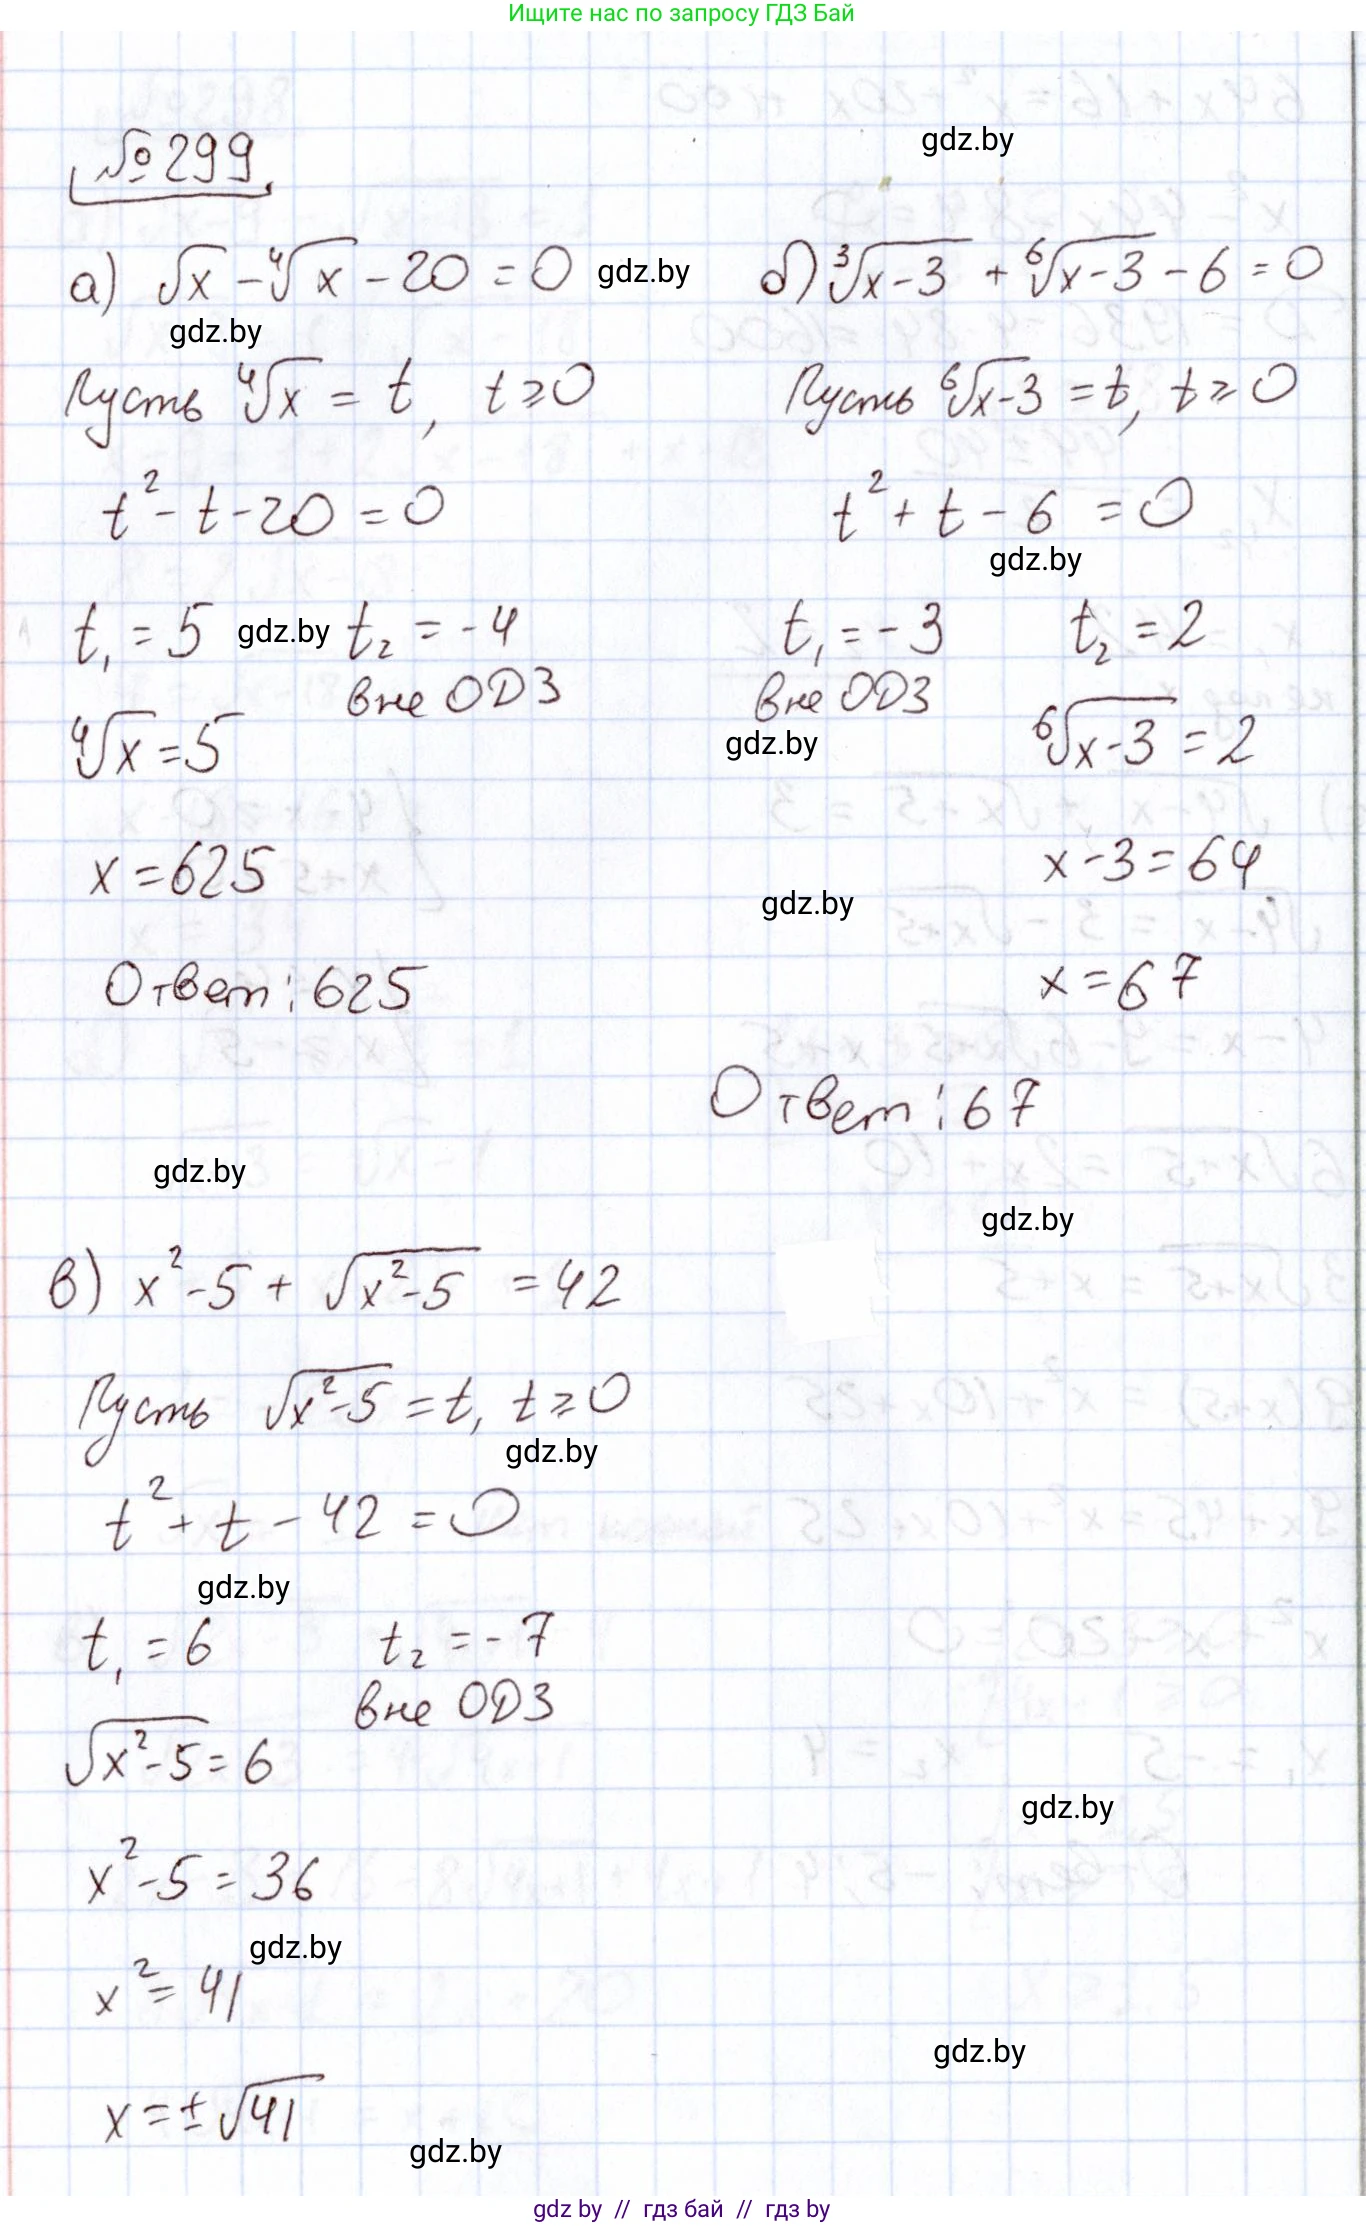 Ищите нас по запросу ГДЗ Бай
№299
gdz.by
а) √x - ⁴√x - 20 = 0
gdz.by
gdz.by
Пусть ⁴√x = t, t ≥ 0
t² - t - 20 = 0
t₁ = 5 gdz.by t₂ = -4
вне ОДЗ
⁴√x = 5
x = 625
Ответ: 625
б) ³√x-3 + ⁶√x-3 - 6 = 0
Пусть ⁶√x-3 = t, t ≥ 0
t² + t - 6 = 0
gdz.by
t₁ = -3 t₂ = 2
вне ОДЗ
gdz.by
⁶√x-3 = 2
x - 3 = 64
gdz.by
x = 67
Ответ: 67
gdz.by
gdz.by
в) x² - 5 + √x²-5 = 42
Пусть √x²-5 = t, t ≥ 0
gdz.by
t² + t - 42 = 0
gdz.by
t₁ = 6 t₂ = -7
вне ОДЗ
√x²-5 = 6
gdz.by
x² - 5 = 36
gdz.by
x² = 41
gdz.by
x = ±√41
gdz.by
gdz by // гдз бай // гдз by